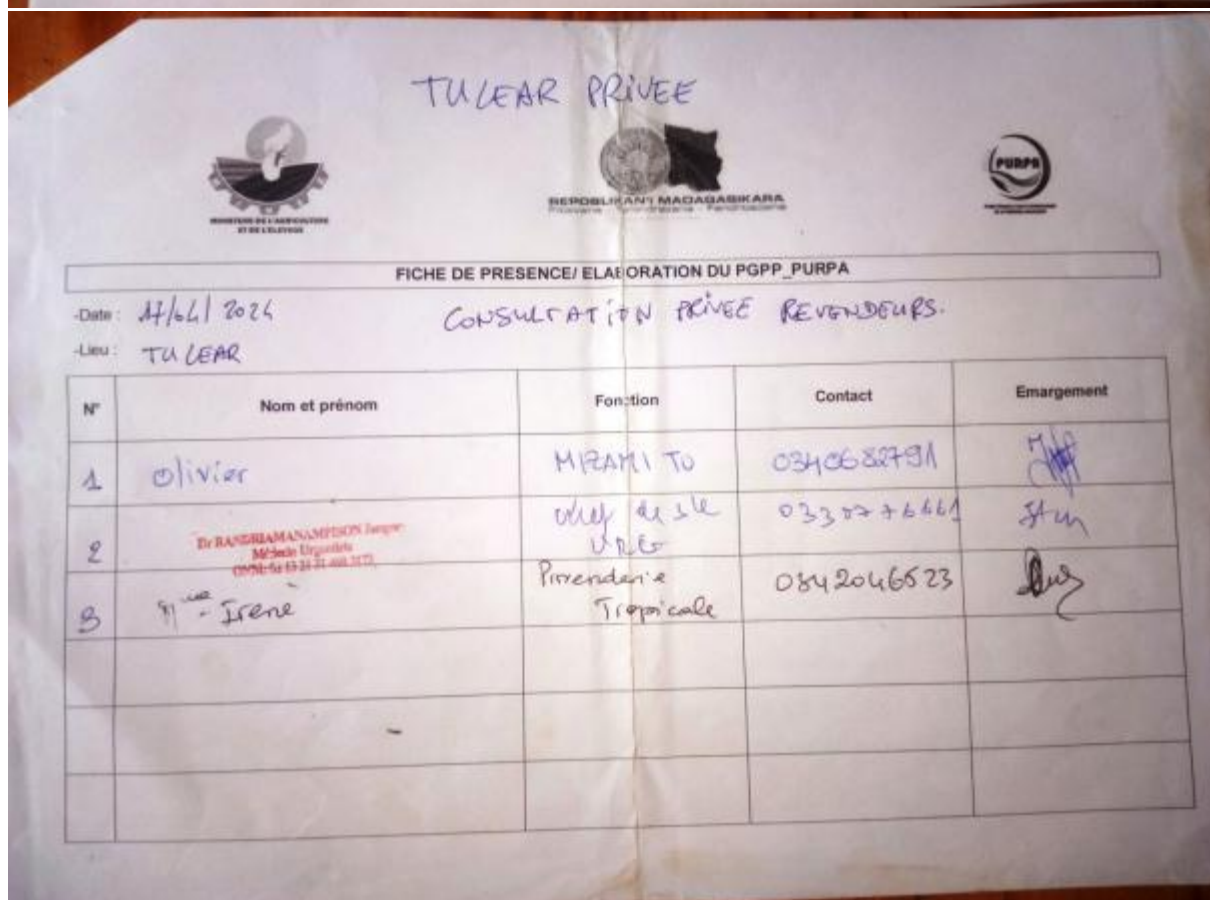 TULEAR PRIVEE
MINISTERE DE L'AGRICULTURE
ET DE L'ELEVAGE
REPOBLIKAN'I MADAGASIKARA
Fitiavana - Tanindrazana - Fandrosoana
PURPA
FICHE DE PRESENCE/ ELABORATION DU PGPP_PURPA
-Date : 17/04/2024 CONSULTATION PRIVEE REVENDEURS.
-Lieu : TULEAR
N° Nom et prénom Fonction Contact Emargement
1 Olivier MIZAMITO 0340682791
2 Dr RANDRIAMANAMPISON
Médecin Urgentiste
3 Mme Irene Tropicale 0342046523